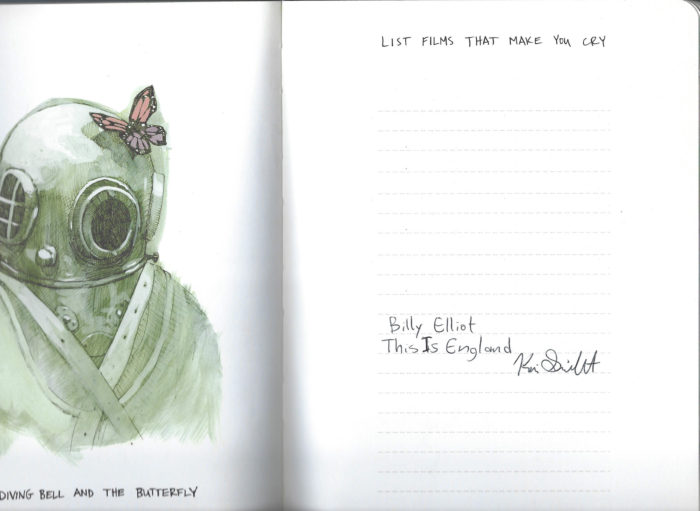 DIVING BELL AND THE BUTTERFLY
LIST FILMS THAT MAKE YOU CRY
Billy Elliot
This Is England